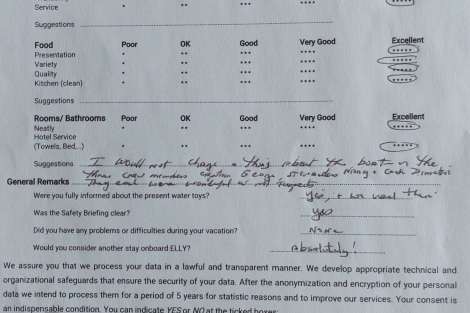 Service * ** *** **** *****
Suggestions
Food Poor OK Good Very Good Excellent
Presentation * ** *** **** *****
Variety * ** *** **** *****
Quality * ** *** **** *****
Kitchen (clean) * ** *** **** *****
Suggestions
Rooms/ Bathrooms Poor OK Good Very Good Excellent
Neatly * ** *** **** *****
Hotel Service
(Towels, Bed,..) * ** *** **** *****
Suggestions I would not change a thing about the boat or the
three crew members captain George, stewardess + Cook Dimitris
General Remarks They each were wonderful in all respects
Were you fully informed about the present water toys? yes, + we used them
Was the Safety Briefing clear? yes
Did you have any problems or difficulties during your vacation? None
Would you consider another stay onboard ELLY? Absolutely!
We assure you that we process your data in a lawful and transparent manner. We develop appropriate technical and
organizational safeguards that ensure the security of your data. After the anonymization and encryption of your personal
data we intend to process them for a period of 5 years for statistic reasons and to improve our services. Your consent is
an indispensable condition. You can indicate YES or NO at the ticked boxes: